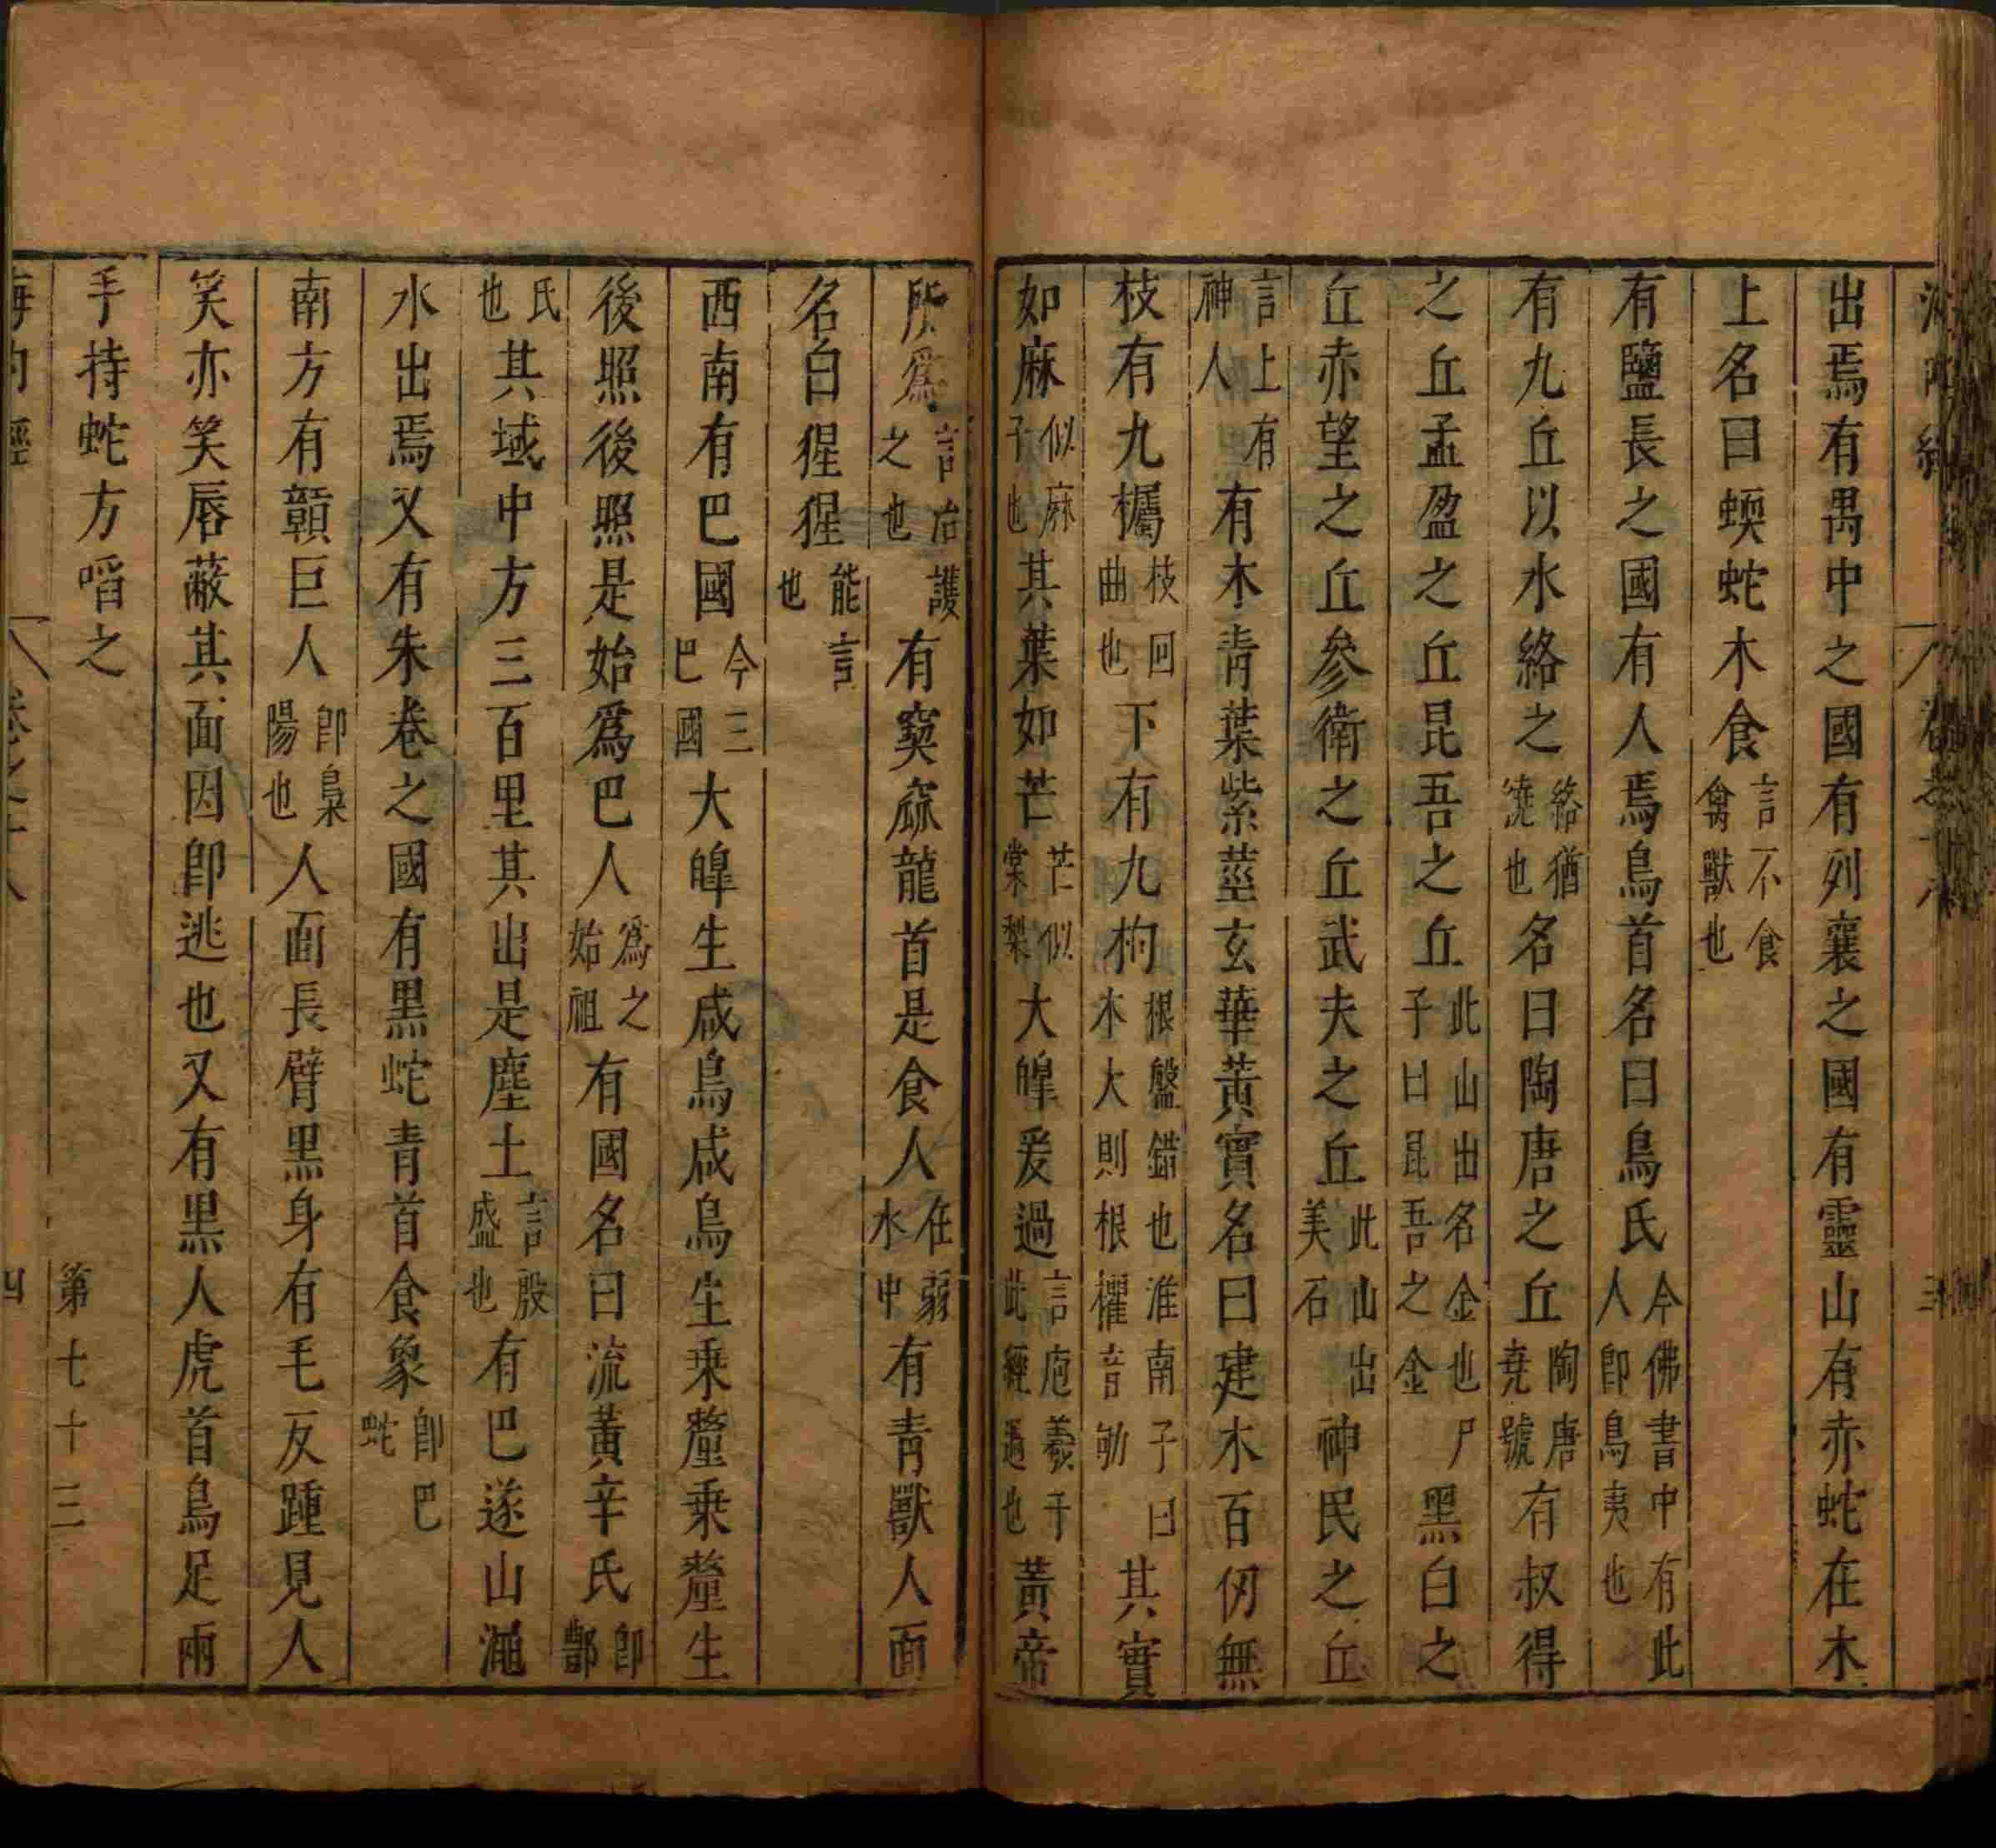 出焉有禺中之國有列襄之國有靈山有赤蛇在木
上名曰蝡蛇木食言不食禽獸也
有鹽長之國有人焉鳥首名曰鳥氏今佛書中有此人卽鳥夷也
有九丘以水絡之絡猶澆也名曰陶唐之丘陶唐堯號有叔得
之丘孟盈之丘昆吾之丘此山出名金也尸子曰昆吾之金黑白之
丘赤望之丘參衛之丘武夫之丘此山出美石神民之丘
言上有神人有木青葉紫莖玄華黃實名曰建木百仞無
枝有九欘枝回曲也下有九枸根盤錯也淮南子曰木大則根欋音劬其實
如麻似麻子也其葉如芒芒似棠梨大皥爰過言庖羲于此經過也黃帝
所爲言治護之也有窫窳龍首是食人在弱水中有青獸人面
名白猩猩能言也
西南有巴國今三巴國大皥生咸鳥咸鳥生乗釐乗釐生
後照後照是始爲巴人爲之始祖有國名曰流黃辛氏卽酆
氏也其域中方三百里其出是塵土言殷盛也有巴遂山澠
水出焉又有朱卷之國有黑蛇青首食象卽巴蛇
南方有贛巨人卽梟陽也人面長臂黑身有毛反踵見人
笑亦笑唇蔽其面因卽逃也又有黑人虎首鳥足兩
手持蛇方啗之
第七十三
海內經 卷之十八 四